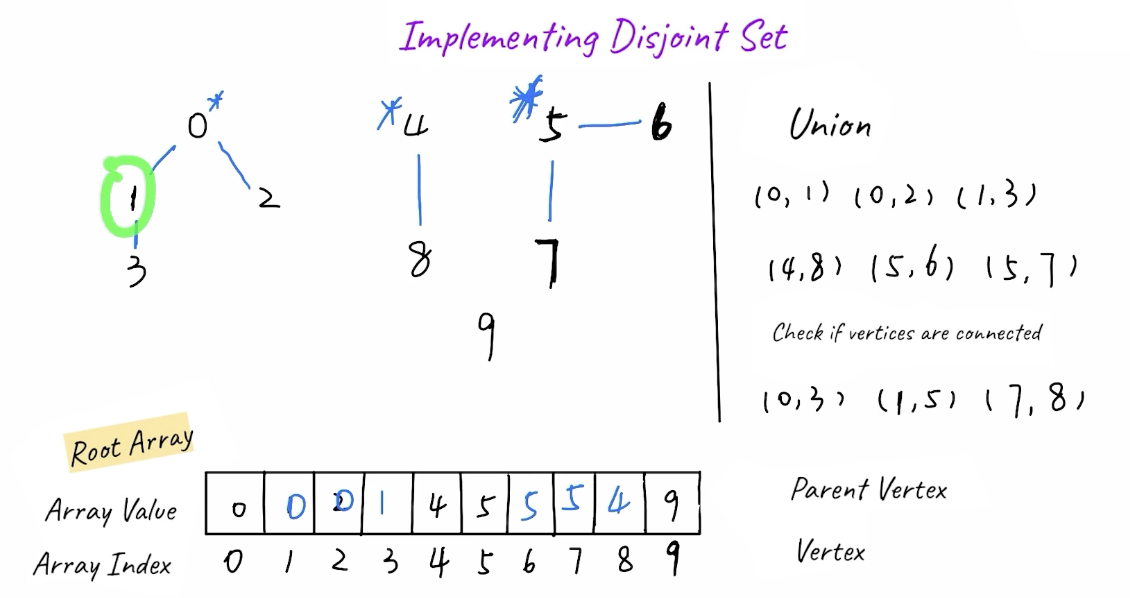 Implementing Disjoint Set
0* *4 *5 6
1 2
3 8 7
9
Union
(0, 1) (0, 2) (1, 3)
(4, 8) (5, 6) (5, 7)
Check if vertices are connected
(0, 3) (1, 5) (7, 8)
Root Array
Array Value 0 0 0 1 4 5 5 5 4 9 Parent Vertex
Array Index 0 1 2 3 4 5 6 7 8 9 Vertex